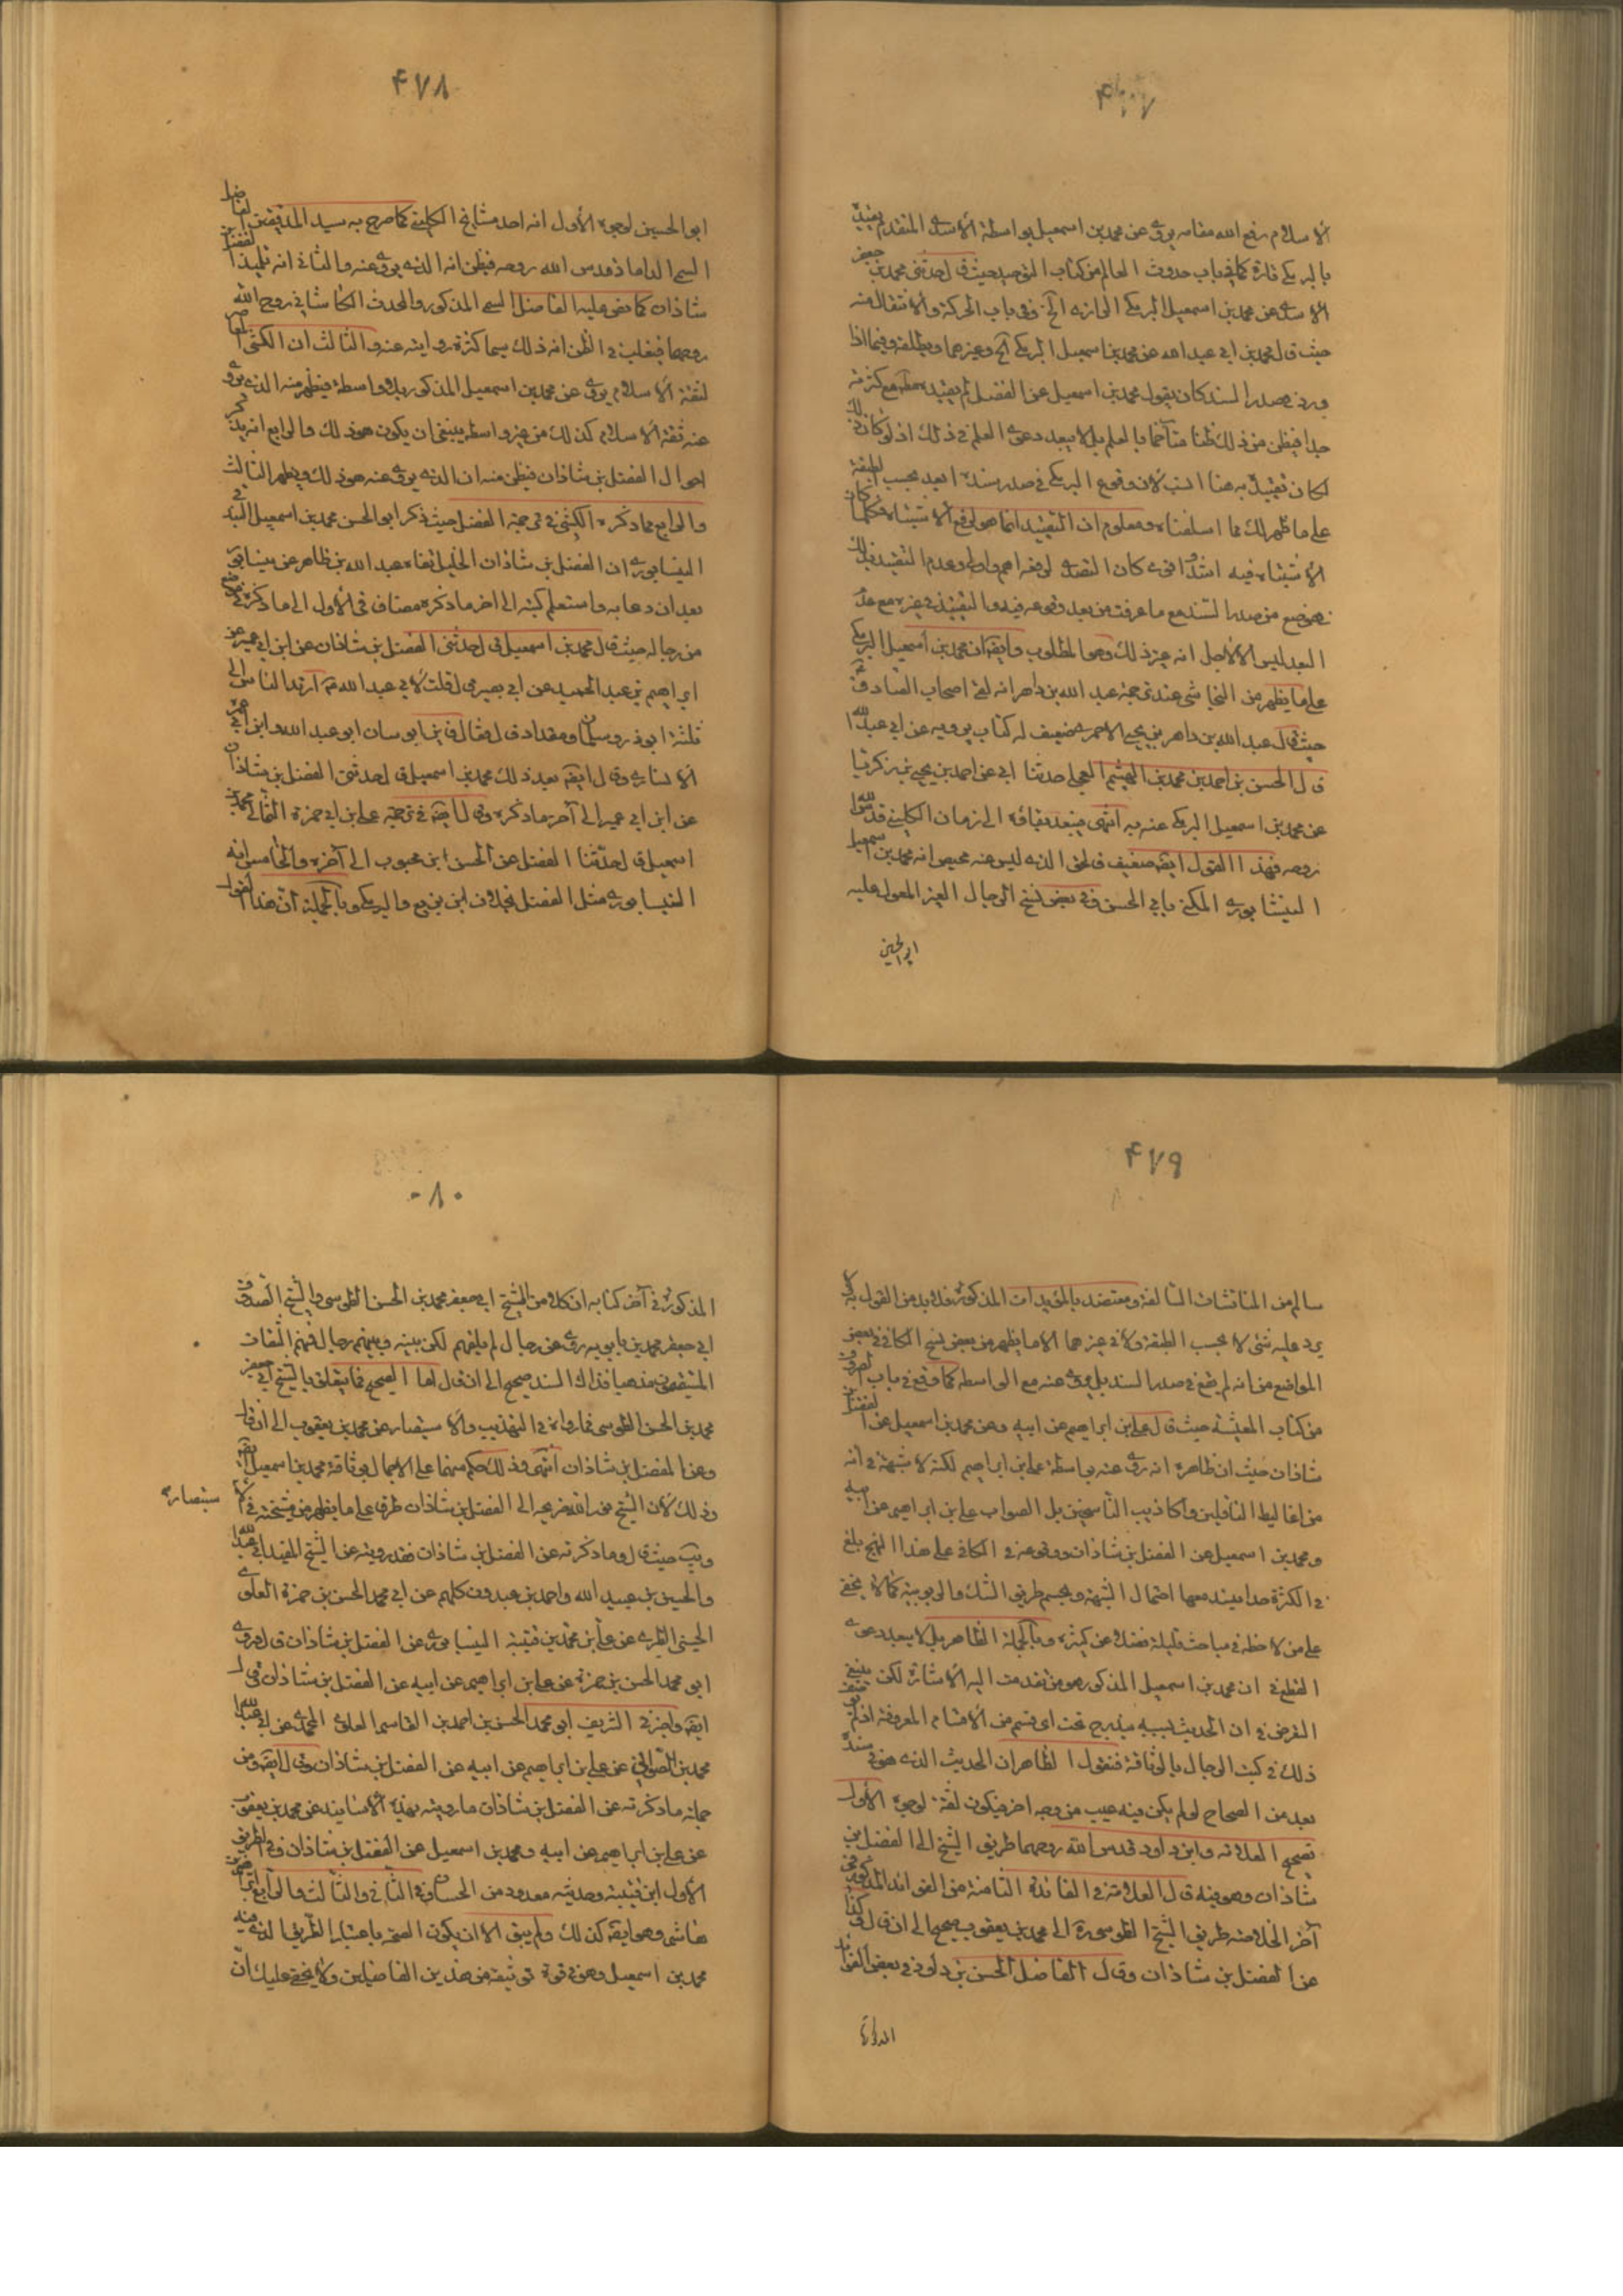 ۴۷۷
الاسلام رفع الله مقامه يروى عن محمد بن اسمعيل بواسطة الاسدى المتقدم يقيده
بالبرمكى تارة كما فى باب حدوث العالم من كتاب التوحيد حيث قال حدثنى محمد بن جعفر
الاسدى عن محمد بن اسمعيل البرمكى الرازى الخ وفى باب الحركة والانتقال منه
حيث قال محمد بن ابى عبد الله عن محمد بن اسمعيل البرمكى الخ وغيرهما ويطلقه وفيما اذا
ورد فى صدر السند كان يقول محمد بن اسمعيل عن الفضل لم يقيده مع كثرته
جدا فيظن من ذلك ظنا متاخما بالعلم بل لا يبعد دعوى العلم فى ذلك اذ لو كان ذلك
لكان تقييده هنا انسب لان وقوع البرمكى فى صدر سنده ابعد بحسب الطبقة
على ما ظهر لك مما اسلفناه ومعلوم ان التقييد انما هو لرفع الاشتباه فكلما كان
الاشتباه فيه اشد اقوى كان التصدى لرفعه اهم واولى وعدم التقييد بذلك
فى موضع من صدر السند مع ما عرفت من بعد وقوعه فيه والتقييد فى غيره مع عدم
البعد ليس الا لاجل انه غير ذلك وهو المطلوب وايضا ان محمد بن اسمعيل البرمكى
على ما يظهر من النجاشى عند ترجمة عبد الله بن داهر انه لقى اصحاب الصادق
حيث قال عبد الله بن داهر بن يحيى الاحمرى ضعيف له كتاب يرويه عن ابى عبد الله
قال الحسن بن احمد بن محمد بن الهيثم العجلى حدثنا ابى عن احمد بن يحيى بن زكريا
عن محمد بن اسمعيل البرمكى عنه به انتهى فيبعد بقاؤه الى زمان الكلينى قدس الله
روحه فهذا القول ايضا ضعيف فالحق الذى ليس عنه محيص انه محمد بن اسمعيل
النيشابورى المكنى بابى الحسن وفى بعض نسخ الرجال الغير المعول عليه
ابو الحسين
۴۷۸
ابو الحسين لوجوه الاول انه احد مشايخ الكلينى كما صرح به سيد المدققين الفاضل
السمى الداماد قدس الله روحه فيظن انه الذى يروى عنه والثانى انه تلميذ الفضل بن
شاذان كما نص عليه الفاضل السمى المذكور والمحدث الكاشانى روح الله
روحهما فيغلب فى الظن انه ذلك سيما كثرة روايته عنه والثالث ان الكشى المعاصر
لثقة الاسلام يروى عن محمد بن اسمعيل المذكور بلا واسطة فيظهر منه الذى يروى
عنه ثقة الاسلام كذلك من غير واسطة ينبغى ان يكون هو ذلك والرابع انه يذكر
احوال الفضل بن شاذان فيظن منه ان الذى يروى عنه هو ذلك ويظهر الثالث
والرابع مما ذكره الكشى فى ترجمة الفضل حيث ذكر ابو الحسن محمد بن اسمعيل البندقى
النيسابورى ان الفضل بن شاذان الخليل نفاه عبد الله بن طاهر عن نيسابور
بعد ان دعا به واستعلم كتبه الى اخر ما ذكره مضاف فى الاول الى ما ذكره فى موضع
من رجاله حيث قال محمد بن اسمعيل قال حدثنى الفضل بن شاذان عن ابن ابى عمير عن
ابراهيم بن عبد الحميد عن ابى بصير قال قلت لابى عبد الله ارتد الناس الا
ثلثة ابو ذر وسلمان ومقداد قال فقال فاين ابو سان ابو عبد الله وابو عمرة
الانصارى وقال ايضا بعد ذلك محمد بن اسمعيل قال حدثنى الفضل بن شاذان
عن ابن ابى عمير الى آخر ما ذكره وقال ايضا فى ترجمة على بن ابى حمزة الثمالى محمد بن
اسمعيل قال حدثنا الفضل عن الحسن ابن محبوب الى آخره والخامس انه
النيسابورى مثل الفضل بخلاف ابن بزيع والبرمكى وبالجملة ان هذا القول
۴۷۹
سالم من المناقشات السالفة ومعتضد بالمؤيدات المذكورة فلابد من القول به
يرد عليه شئ لا بحسب الطبقة ولا فى غيرهما الا ما يظهر من بعض نسخ الكافى فى بعض
المواضع من انه لم يقع فى صدر السند بل يروى عنه مع الواسطة كما وقع فى باب المعروف
من كتاب المعيشة حيث قال على بن ابراهيم عن ابيه وعن محمد بن اسمعيل عن الفضل بن
شاذان حيث ان ظاهره انه روى عنه بواسطة على بن ابراهيم لكنه لا شبهة فى انه
من اغاليط الناقلين واكاذيب الناسخين بل الصواب على بن ابراهيم عن ابيه
ومحمد بن اسمعيل عن الفضل بن شاذان ووقوعه فى الكافى على هذا النهج بلغ
فى الكثرة حدا يندفع معها احتمال الشبهة ويحسم طريق الشك والريبة كما لا يخفى
على من لاحظه فى مباحث قليلة فضلا عن كثيره وبالجملة الظاهر بل لا يبعد دعوى
القطع فى ان محمد بن اسمعيل المذكور هو من تقدمت اليه الاشارة لكن ينبغى
الغرض فى ان الحديث بسببه يندرج تحت اى قسم من الاقسام المعروفة اذ لم يوصف
ذلك فى كتب الرجال بالوثاقة فنقول الظاهر ان الحديث الذى هو فى سنده
يعد من الصحاح لو لم يكن فيه عيب من وجه اخر فيكون ثقة لوجوه الاول
تصحيح العلامة وابن داود قدس الله روحهما طريق الشيخ الى الفضل بن
شاذان وهو فيه قال العلامة فى الفائدة الثامنة من الفوائد المذكورة فى
آخر الخلاصة طريق الشيخ الطوسى ره الى محمد بن يعقوب صحيح الى ان قال وكذا
عن الفضل بن شاذان وقال الفاضل الحسن بن داود فى بعض الفوائد
المذكورة
۰۸۰
المذكورة فى آخر كتابه ان كلا من الشيخ ابى جعفر محمد بن الحسن الطوسى والشيخ الصدوق
ابى جعفر محمد بن بابويه روى عن رجال لم يلقهم لكن بينه وبينهم رجال فمنهم الثقات
المستقيمون مذهبا فذاك السند صحيح الى ان قال اما الصحيح فما يتعلق بالشيخ ابى جعفر
محمد بن الحسن الطوسى فما رواه فى التهذيب والاستبصار عن محمد بن يعقوب الى ان قال
وعن الفضل بن شاذان انتهى وذلك حكم منهما على الاجمال بوثاقة محمد بن اسمعيل
وذلك لان الشيخ نور الله ضريحه الى الفضل بن شاذان طرق على ما يظهر من مشيخته فى الا
ستبصار
ويب حيث قال وما ذكرته عن الفضل بن شاذان فقد رويته عن الشيخ المفيد ابى عبد الله
والحسين بن عبيد الله واحمد بن عبدون كلهم عن ابى محمد الحسن بن حمزة العلوى
الحسينى الطبرى عن على بن محمد بن قتيبة النيسابورى عن الفضل بن شاذان قال وروى
ابو محمد الحسن بن حمزة عن على بن ابراهيم عن ابيه عن الفضل بن شاذان قال
ايضا واخبرنى الشريف ابو محمد الحسن بن احمد بن القاسم العلوى المحمدى عن ابى عبد الله
محمد بن الصفوانى عن على بن ابراهيم عن ابيه عن الفضل بن شاذان وقال ايضا ومن
جملة ما ذكرته عن الفضل بن شاذان ما رويته بهذه الاسانيد عن محمد بن يعقوب
عن على بن ابراهيم عن ابيه ومحمد بن اسمعيل عن الفضل بن شاذان وفى الطريق
الاول ابن قتيبة وحديثه معدود من الحسان وفى الثانى والثالث والرابع ابراهيم بن
هاشم وهو ايضا كذلك ولم يبق الا ان يكون الصحة باعتبار الطريق الذى فيه
محمد بن اسمعيل وهو فى قوة توثيقه من هذين الفاضلين ولا يخفى عليك ان